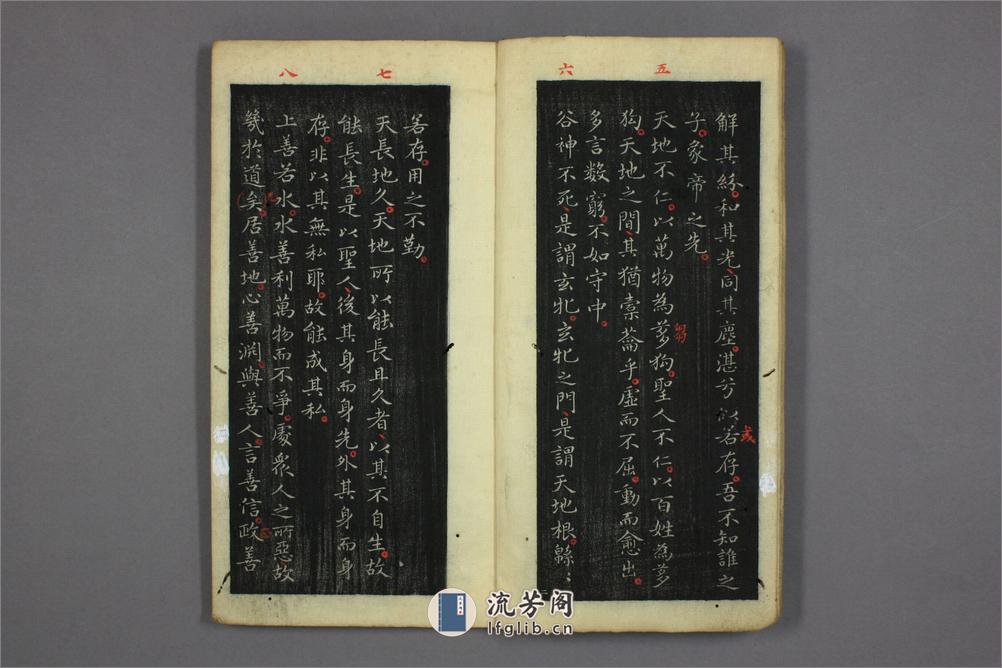 五
六
解其紛和其光同其塵湛兮似若存吾不知誰之
或
子象帝之先
天地不仁以萬物為芻狗聖人不仁以百姓為芻
芻
狗天地之間其猶橐籥乎虛而不屈動而愈出
多言數窮不如守中
谷神不死是謂玄牝玄牝之門是謂天地根緜〻
七
八
若存用之不勤
天長地久天地所以能長且久者以其不自生故
能長生是以聖人後其身而身先外其身而身
存非以其無私耶故能成其私
上善若水水善利萬物而不爭處衆人之所惡故
幾於道矣居善地心善淵與善人言善信政善
流芳阁
lfglib.cn